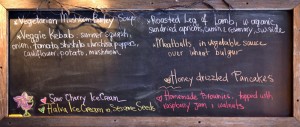 Vegetarian Mushroom Barley Soup
Veggie Kebab: summer squash,
onion, tomato, shishito peppers,
cauliflower, potato, mushroom
Sour Cherry Ice Cream
Halva Ice Cream w Sesame Seeds
Roasted Leg of Lamb, w organic
sundried apricots, rosemary,
Meatballs in vegetable sauce
over wheat bulgur
Honey drizzled Pancakes
Homemade Brownies, topped with
raspberry jam & walnuts